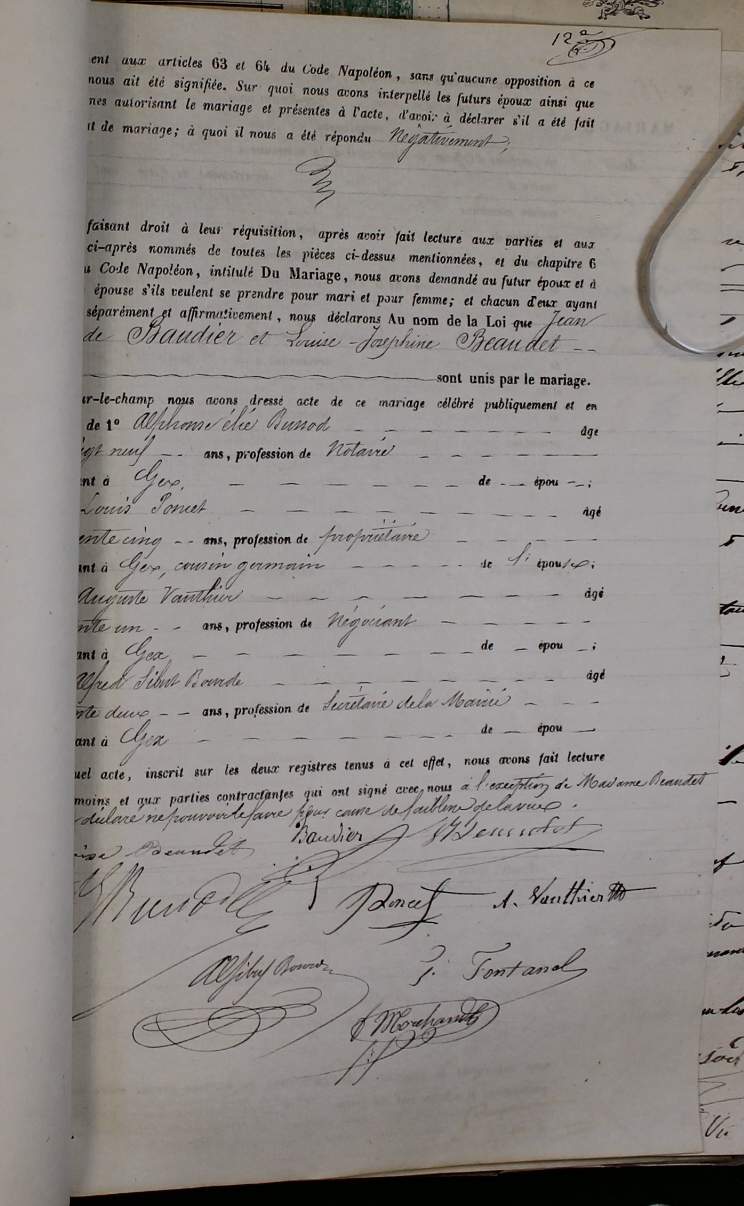 12e
ent aux articles 63 et 64 du Code Napoléon, sans qu'aucune opposition à ce
nous ait été signifiée. Sur quoi nous avons interpellé les futurs époux ainsi que
nes autorisant le mariage et présentes à l'acte, d'avoir à déclarer s'il a été fait
t de mariage; à quoi il nous a été répondu Négativement;
faisant droit à leur réquisition, après avoir fait lecture aux parties et aux
ci-après nommés de toutes les pièces ci-dessus mentionnées, et du chapitre 6
u Code Napoléon, intitulé Du Mariage, nous avons demandé au futur époux et à
épouse s'ils veulent se prendre pour mari et pour femme; et chacun d'eux ayant
séparément et affirmativement, nous déclarons Au nom de la Loi que Jean
de Baudier et Louise-Josephine Beaudet --
sont unis par le mariage.
ur-le-champ nous avons dressé acte de ce mariage célébré publiquement et en
de 1º Alphonse élie age
gt neuf -- ans, profession de Notaire
nt à Gex, de -- épou --;
Louis Poncet âgé
ente cinq -- ans, profession de propriétaire
ant à Gex, cousin germain de l'épouse;
Auguste Vauthier âgé
nte un -- ans, profession de Négociant
ant à Gex de -- épou --;
Alfred âgé
nte deux -- ans, profession de Secrétaire de la Mairie
ant à Gex de -- épou --
uel acte, inscrit sur les deux registres tenus à cet effet, nous avons fait lecture
moins et aux parties contractantes qui ont signé avec nous à l'exception de Madame Beaudet
déclaré ne pouvoir le faire pour cause de faiblesse de la vue.
ise Beaudet Baudier
Poncet A. Vauthier
Fontanel